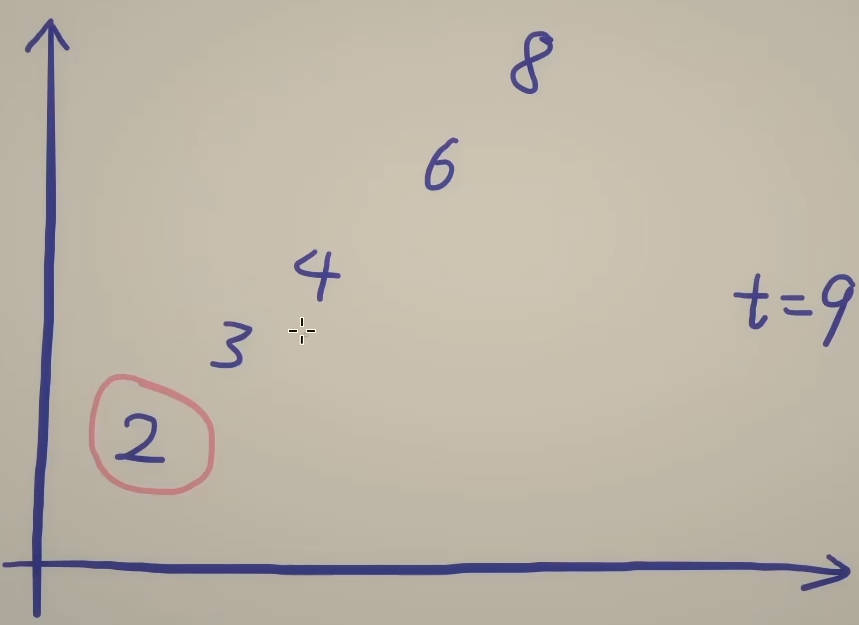 8
6
4
t=9
3
2